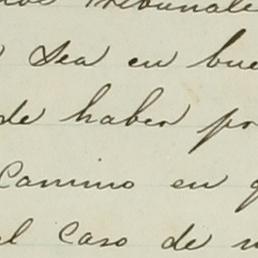 Tribunale
sea en bue
de haber pr
Camino en q
el caso de